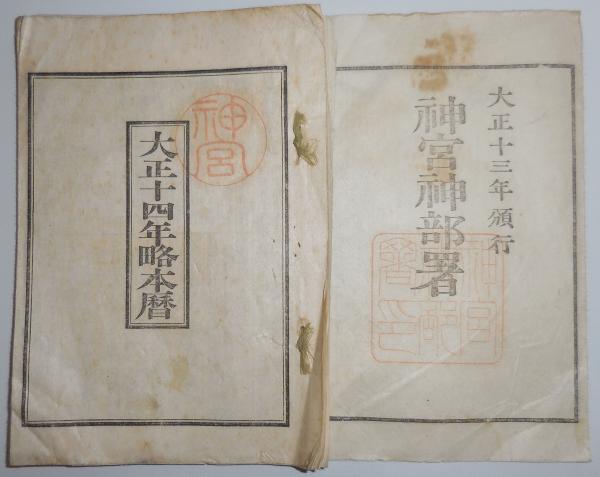 大正十三年頒行
神宮神部署
神宮
大正十四年略本暦